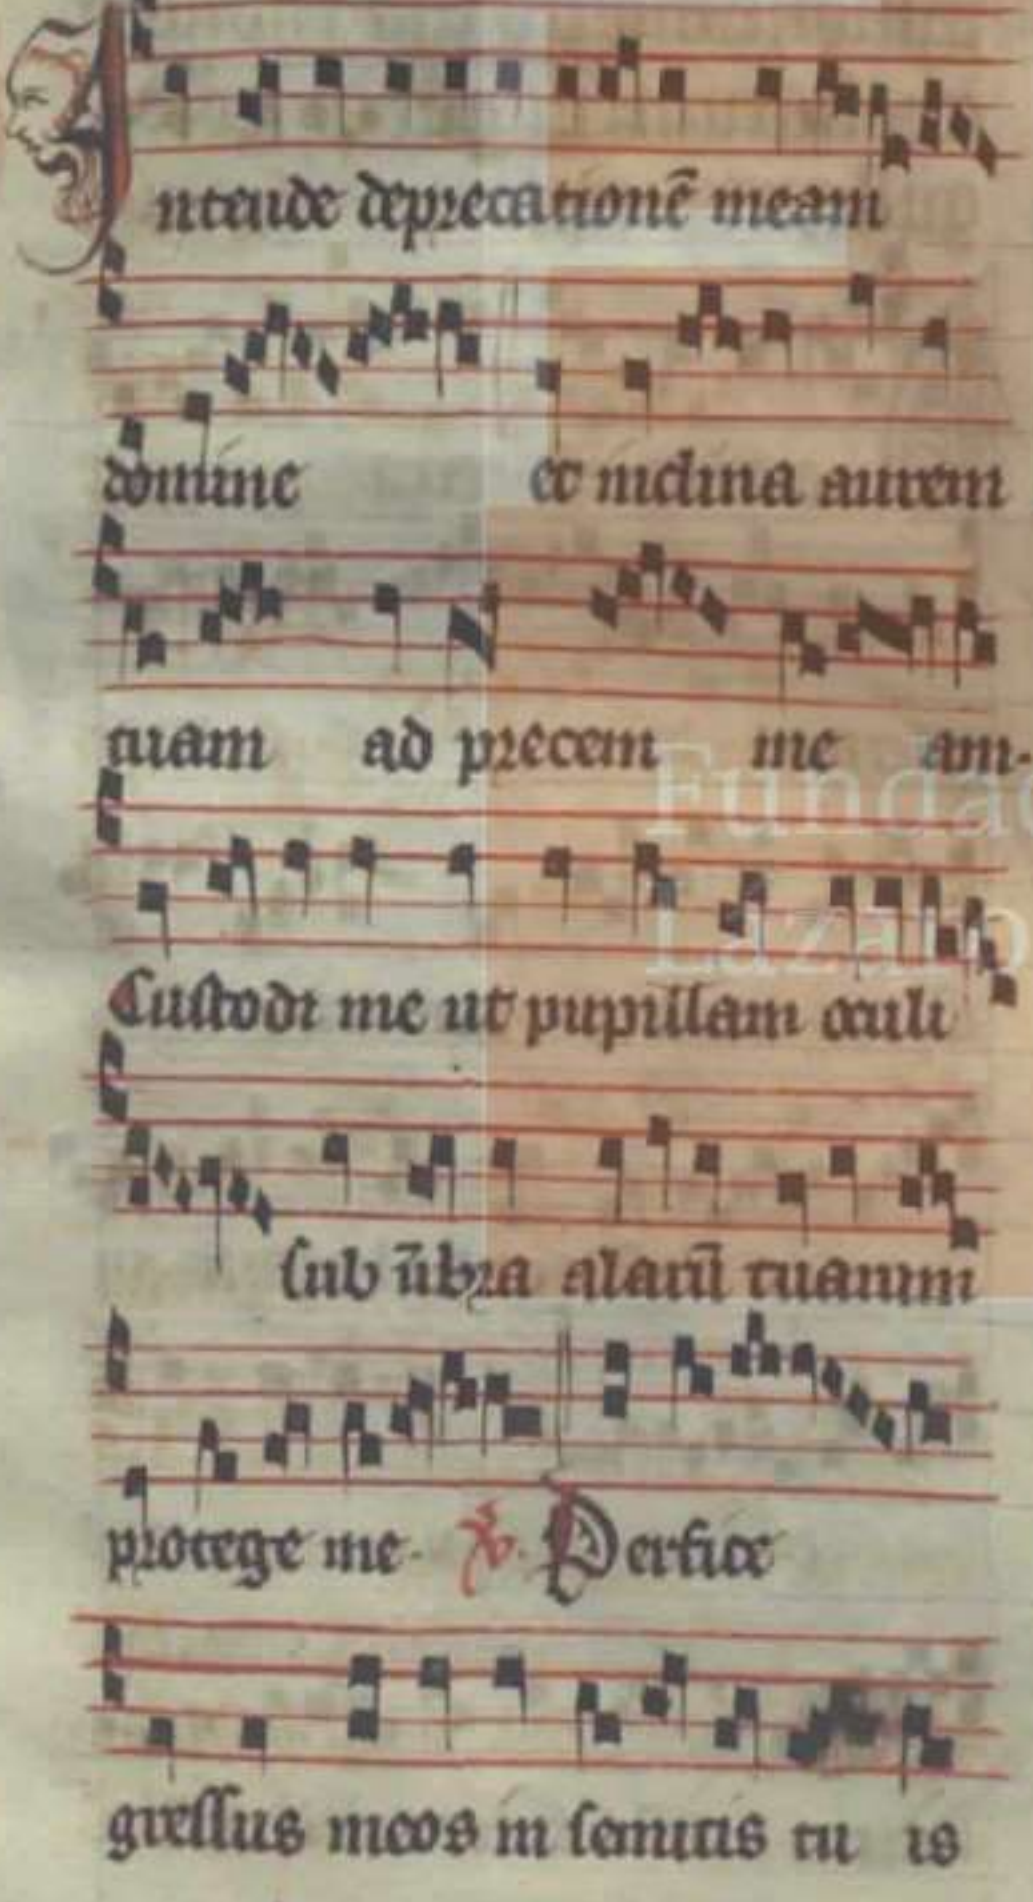 Intende deprecationē meam
domine et inclina aurem
tuam ad precem me am.
Custodi me ut pupillam oculi
sub ūbra alarū tuarum
protege me. ℣. Perfice
gressus meos in semitis tu is
Fundac
Lázaro